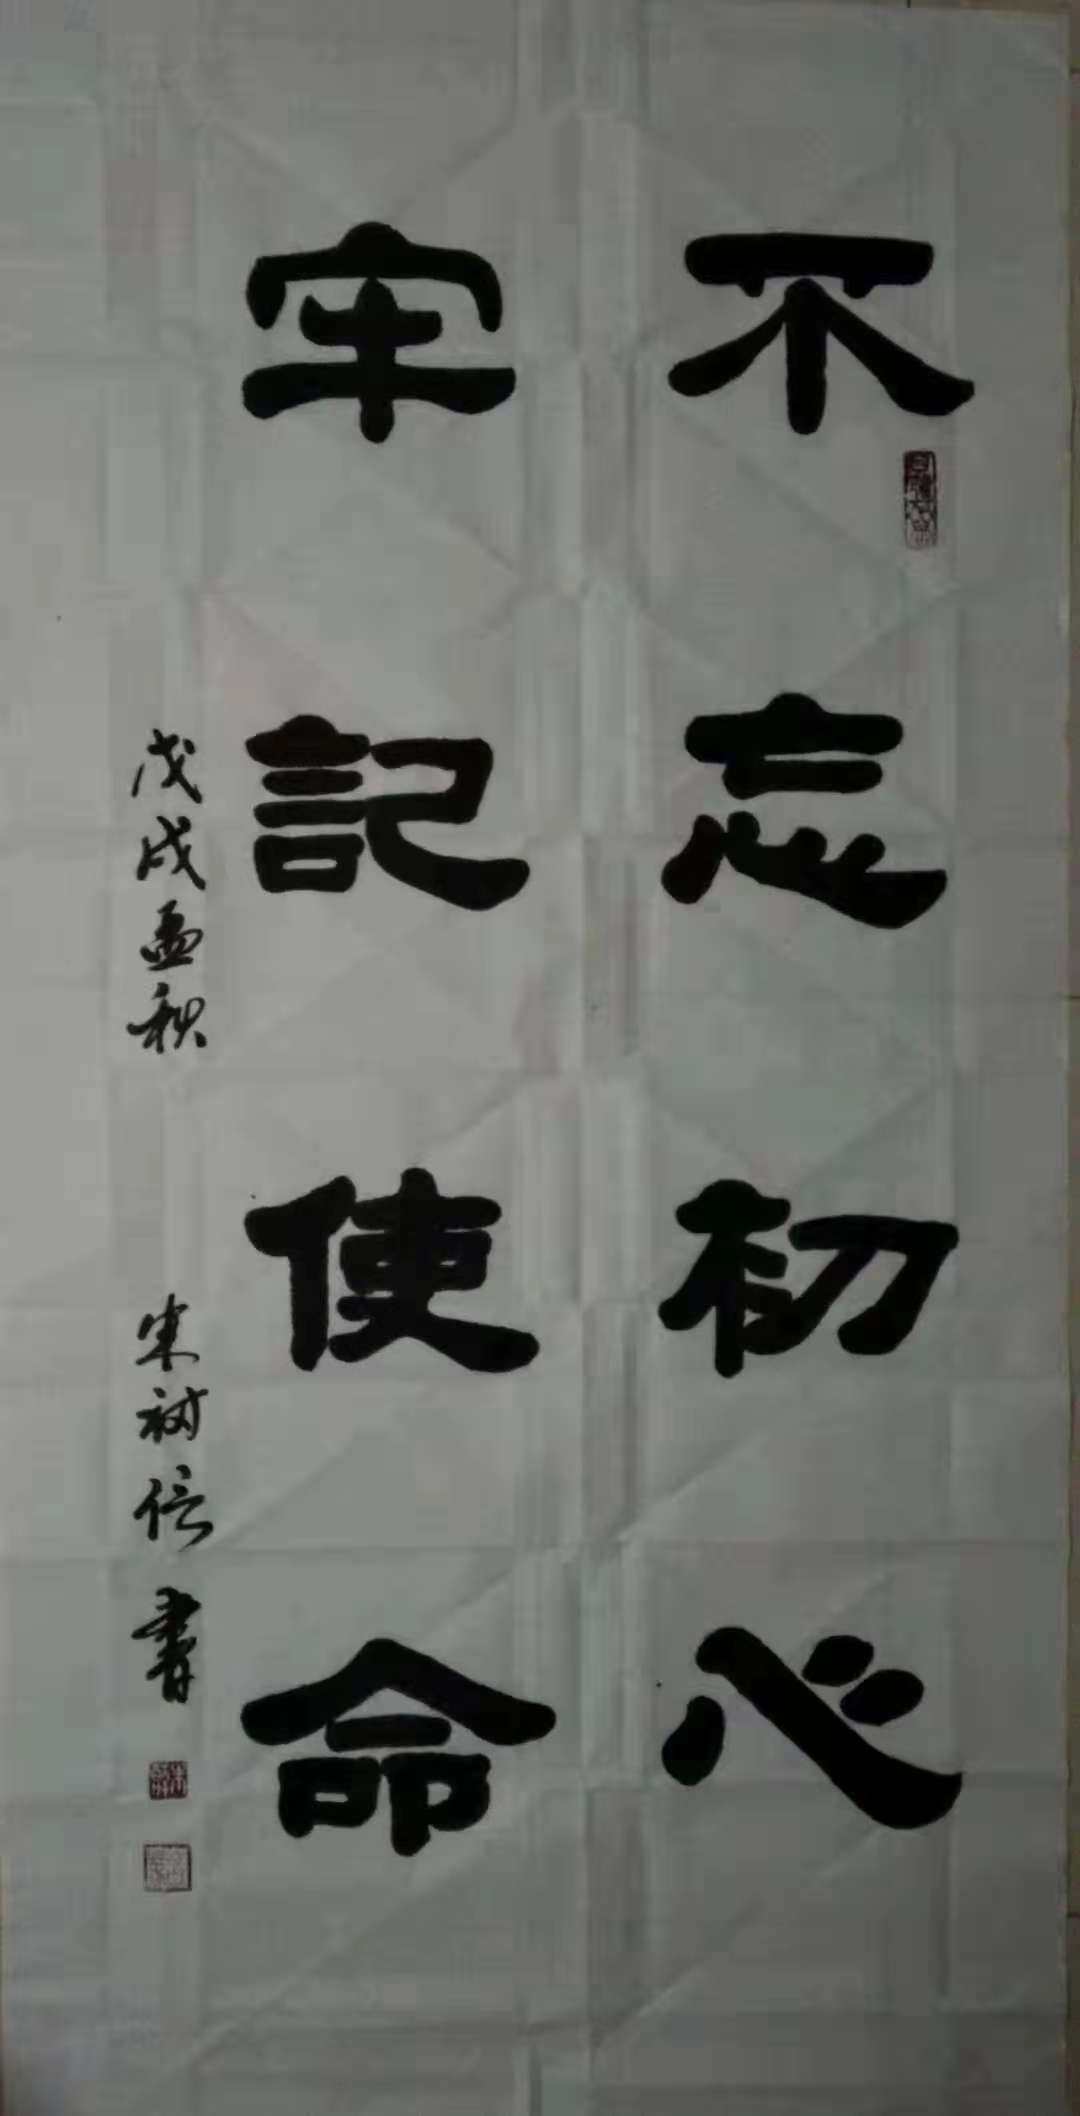 不忘初心
牢記使命
戊戌孟秋
宋树信書